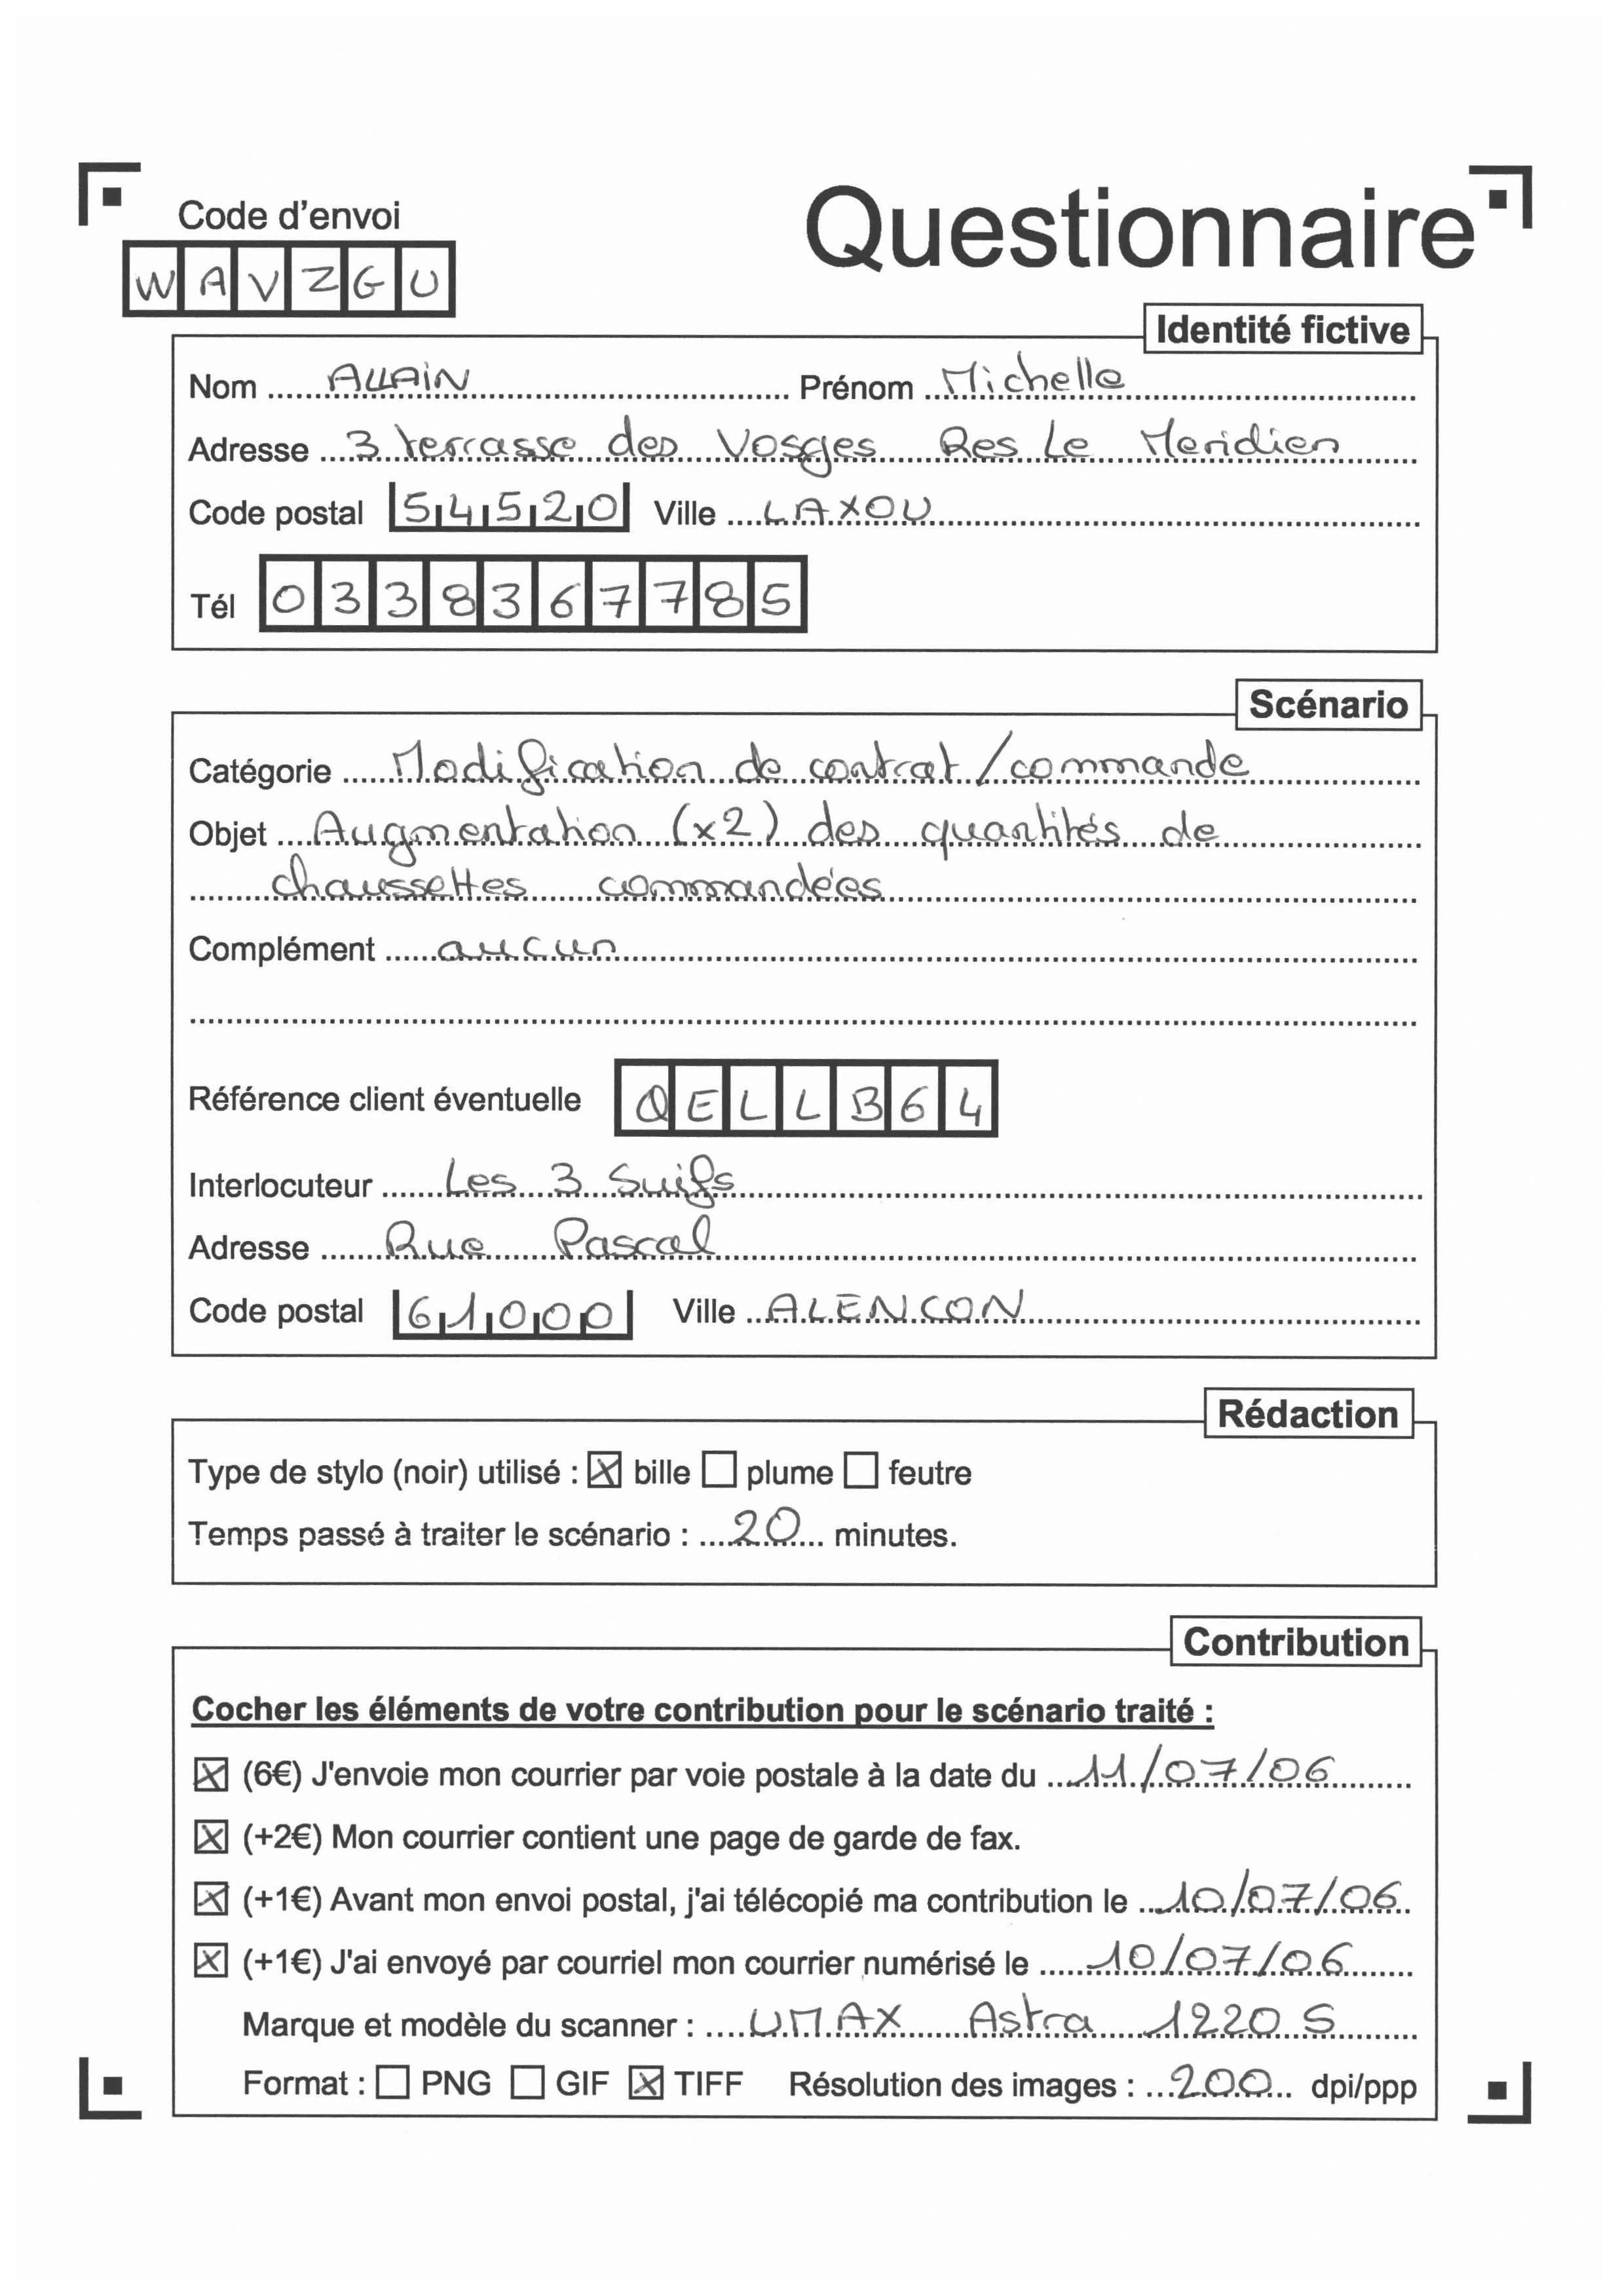 Code d'envoi
Questionnaire
WAVZGU
Identité fictive
Nom ALLAIN Prénom Michelle
Adresse 3 terrasse des Vosges Res Le Meridien
Code postal 54520 Ville LAXOU
Tél 0338367785
Scénario
Catégorie Modification de contrat/commande
Objet Augmentation (x2) des quantités de
chaussettes commandées
Complément aucun
Référence client éventuelle QELLB64
Interlocuteur Les 3 Suifs
Adresse Rue Pascal
Code postal 61000 Ville ALENCON
Rédaction
Type de stylo (noir) utilisé : ☒ bille ☐ plume ☐ feutre
Temps passé à traiter le scénario : 20 minutes.
Contribution
Cocher les éléments de votre contribution pour le scénario traité :
☒ (6€) J'envoie mon courrier par voie postale à la date du 11/07/06
☒ (+2€) Mon courrier contient une page de garde de fax.
☒ (+1€) Avant mon envoi postal, j'ai télécopié ma contribution le 10/07/06
☒ (+1€) J'ai envoyé par courriel mon courrier numérisé le 10/07/06
Marque et modèle du scanner : UMAX Astra 1220 S
Format : ☐ PNG ☐ GIF ☒ TIFF Résolution des images : 200 dpi/ppp